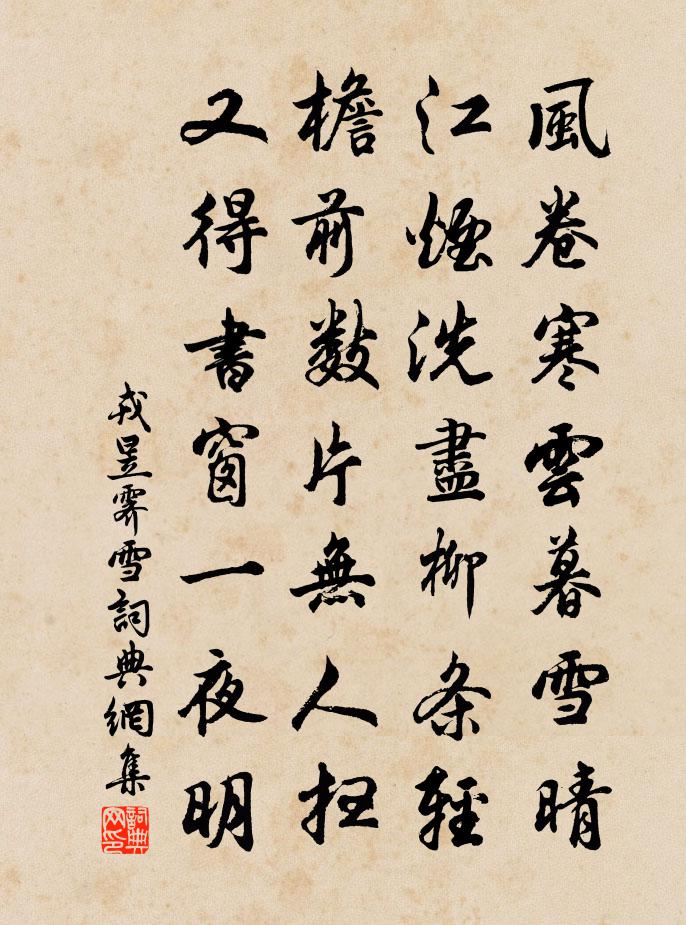 風卷寒雲暮雪晴
江煙洗盡柳条輕
檐前數片無人掃
又得書窗一夜明
戎昱霽雪詞典網集
詞典網印